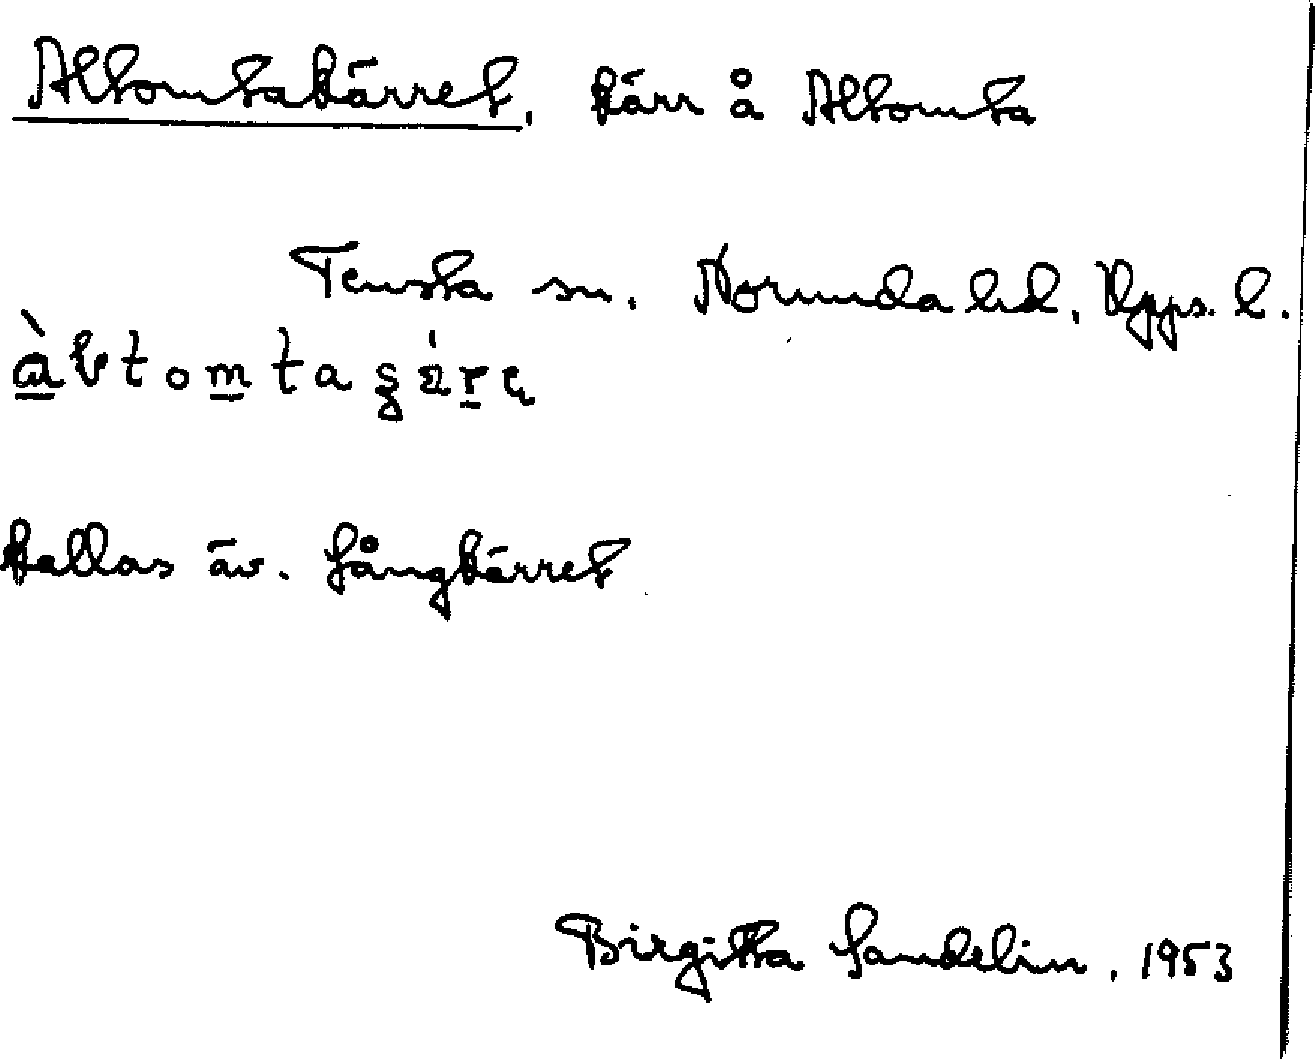 Altomtakärret, kärr å Altomta
Tensta sn. Norunda hd, Upps. l.
kallas äv. Långkärret
Birgitta Sandelin, 1953